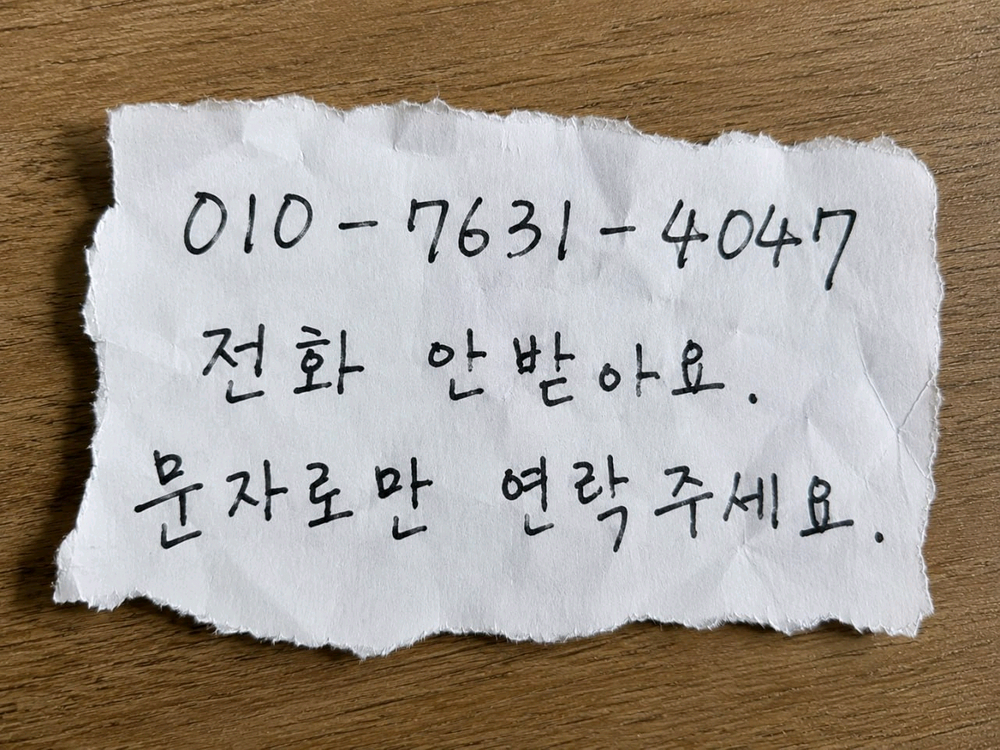 010-7631-4047
전화 안받아요.
문자로만 연락주세요.